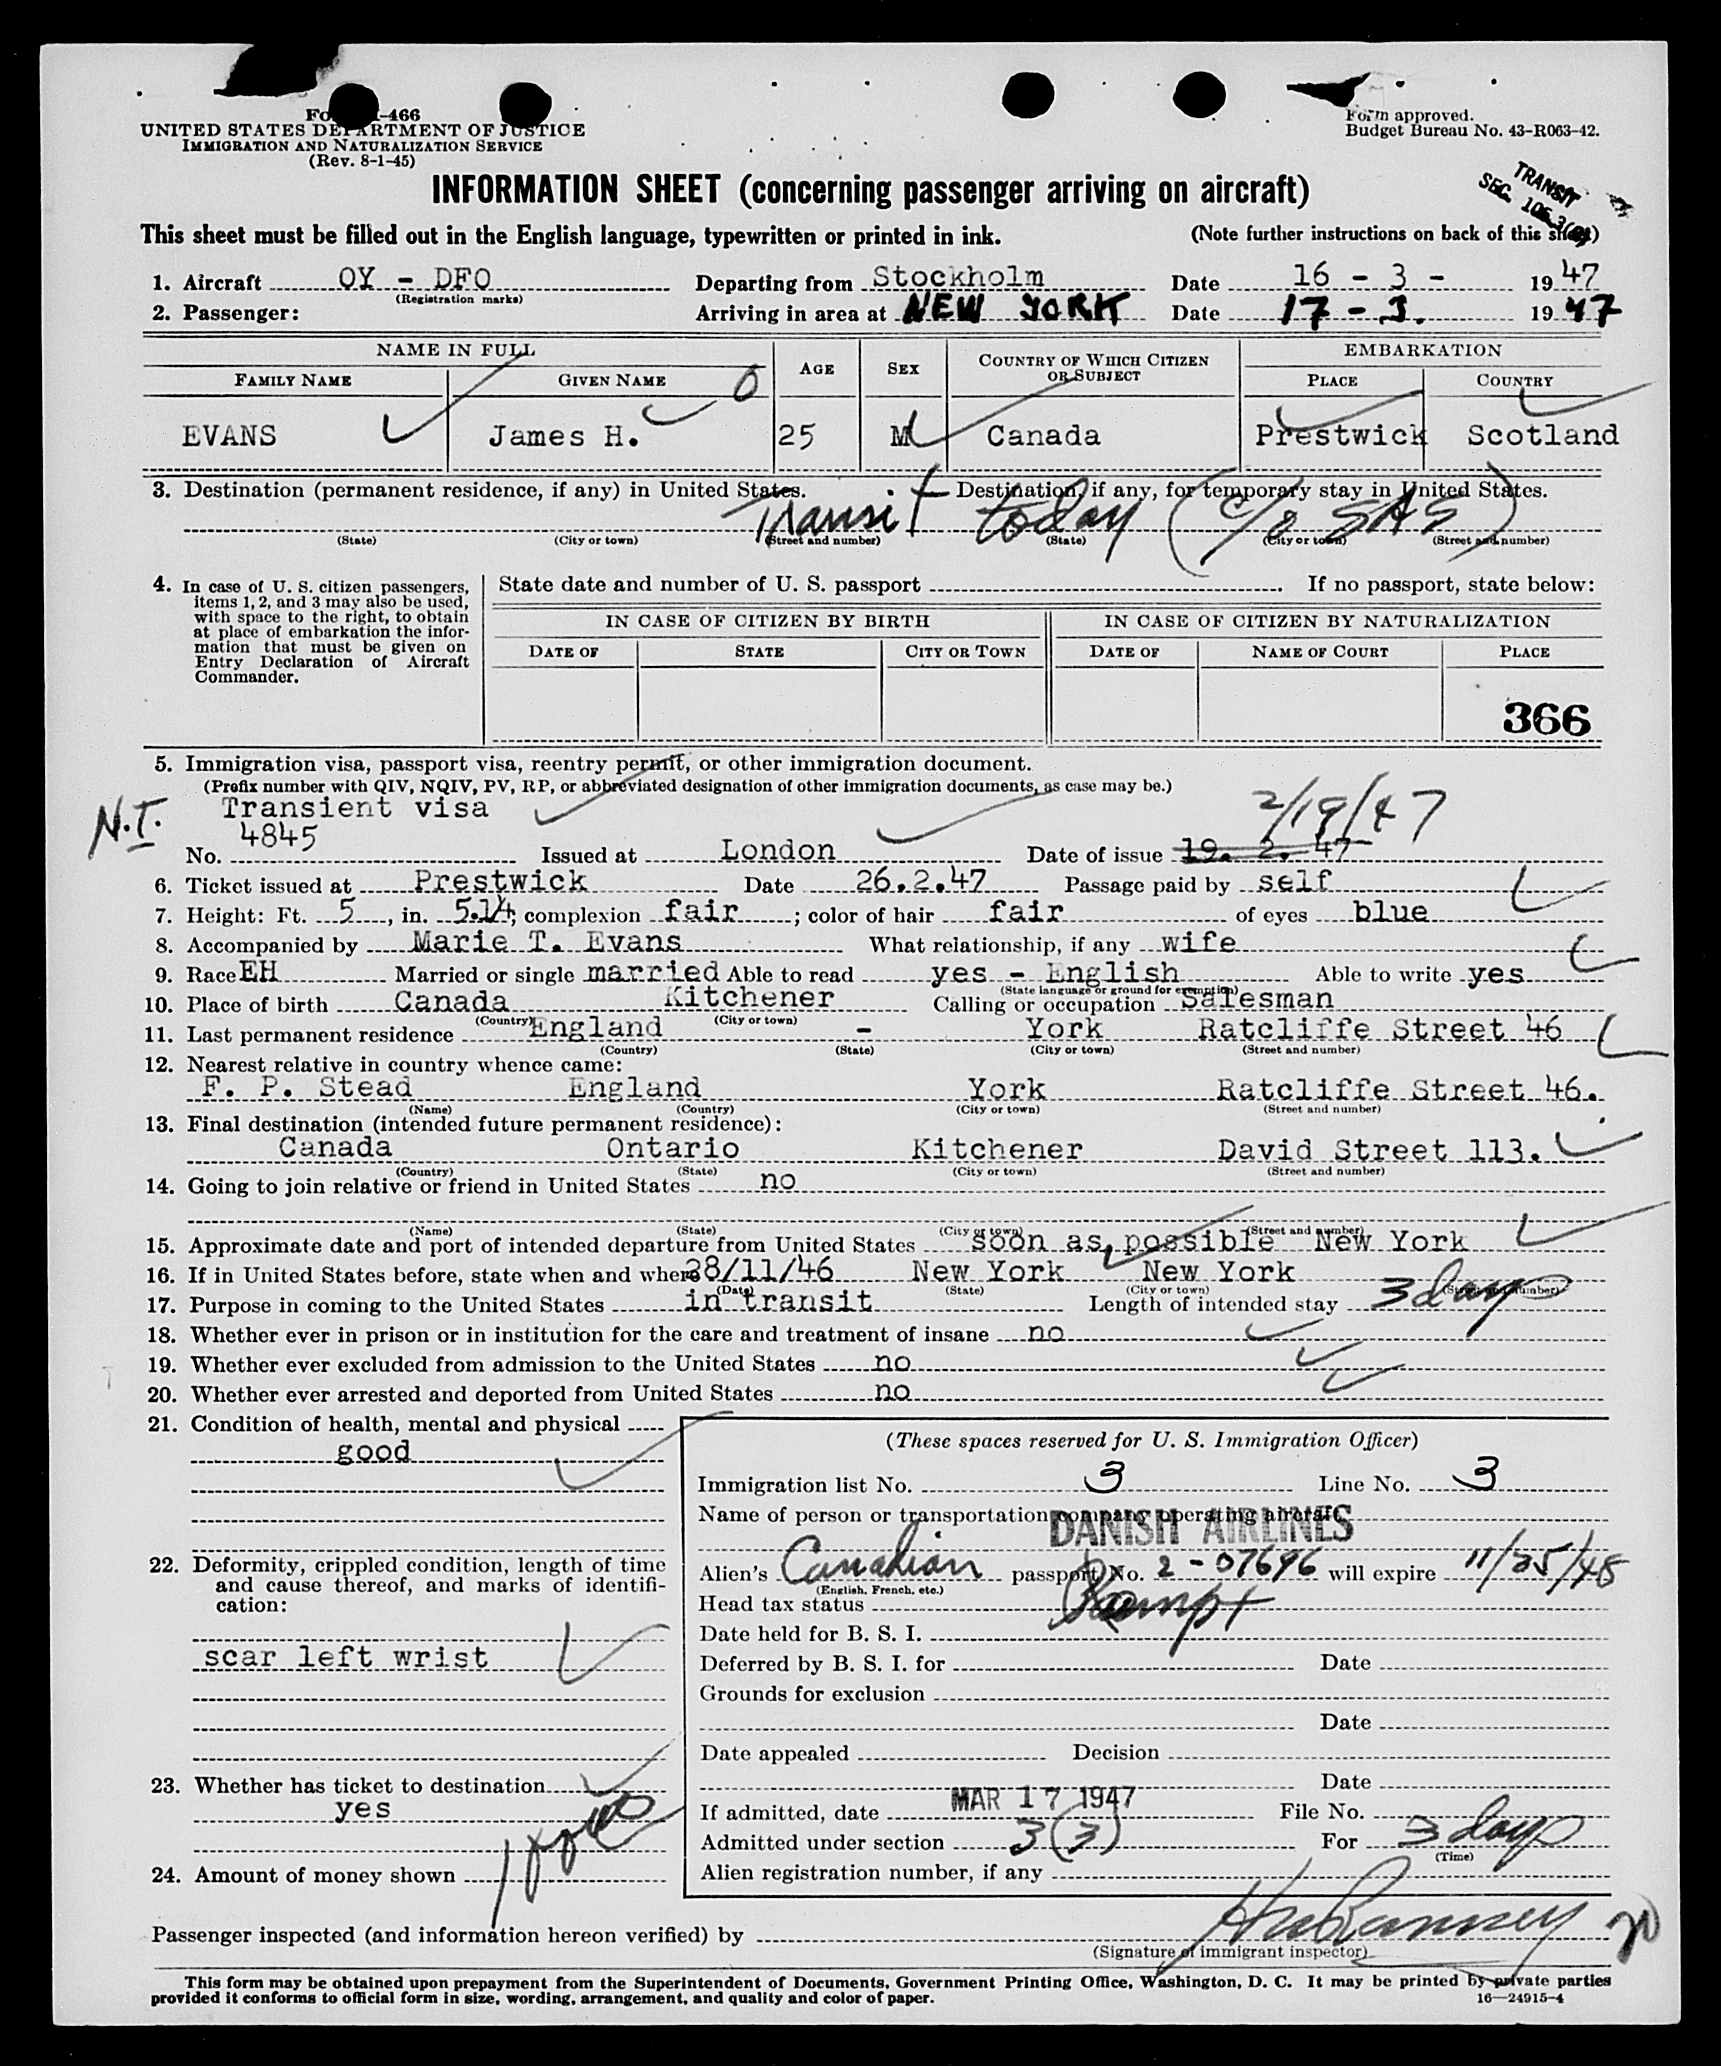 -466
UNITED STATES DEPARTMENT OF JUSTICE
IMMIGRATION AND NATURALIZATION SERVICE
(Rev. 8-1-45)
Form approved.
Budget Bureau No. 43-R063-42.
INFORMATION SHEET (concerning passenger arriving on aircraft)
TRANSIT
SEC. 106.3
This sheet must be filled out in the English language, typewritten or printed in ink. (Note further instructions on back of this sheet)
1. Aircraft OY - DFO Departing from Stockholm Date 16 - 3 - 1947
(Registration marks)
2. Passenger: Arriving in area at NEW YORK Date 17 - 3. 1947
NAME IN FULL AGE SEX COUNTRY OF WHICH CITIZEN OR SUBJECT EMBARKATION
FAMILY NAME GIVEN NAME PLACE COUNTRY
EVANS James H. 25 M Canada Prestwick Scotland
3. Destination (permanent residence, if any) in United States. Destination, if any, for temporary stay in United States.
Transit today (c/o SAS)
(State) (City or town) (Street and number) (State) (City or town) (Street and number)
4. In case of U. S. citizen passengers, items 1, 2, and 3 may also be used, with space to the right, to obtain at place of embarkation the information that must be given on Entry Declaration of Aircraft Commander.
State date and number of U. S. passport . If no passport, state below:
IN CASE OF CITIZEN BY BIRTH IN CASE OF CITIZEN BY NATURALIZATION
DATE OF STATE CITY OR TOWN DATE OF NAME OF COURT PLACE
366
5. Immigration visa, passport visa, reentry permit, or other immigration document.
(Prefix number with QIV, NQIV, PV, RP, or abbreviated designation of other immigration documents, as case may be.)
N.I. Transient visa 2/19/47
No. 4845 Issued at London Date of issue 19. 2. 47
6. Ticket issued at Prestwick Date 26.2.47 Passage paid by self
7. Height: Ft. 5, in. 5.1/4; complexion fair; color of hair fair of eyes blue
8. Accompanied by Marie T. Evans What relationship, if any wife
9. Race EH Married or single married Able to read yes - English Able to write yes
(State language or ground for exemption)
10. Place of birth Canada Kitchener Calling or occupation Salesman
(Country) (City or town)
11. Last permanent residence England - York Ratcliffe Street 46
(Country) (State) (City or town) (Street and number)
12. Nearest relative in country whence came:
F. P. Stead England York Ratcliffe Street 46.
(Name) (Country) (City or town) (Street and number)
13. Final destination (intended future permanent residence):
Canada Ontario Kitchener David Street 113.
(Country) (State) (City or town) (Street and number)
14. Going to join relative or friend in United States no
(Name) (State) (City or town) (Street and number)
15. Approximate date and port of intended departure from United States soon as possible New York
16. If in United States before, state when and where 28/11/46 New York New York
(Date) (State) (City or town) (Street and number)
17. Purpose in coming to the United States in transit Length of intended stay 3 days
18. Whether ever in prison or in institution for the care and treatment of insane no
19. Whether ever excluded from admission to the United States no
20. Whether ever arrested and deported from United States no
21. Condition of health, mental and physical
good
22. Deformity, crippled condition, length of time and cause thereof, and marks of identification:
scar left wrist
23. Whether has ticket to destination
yes
24. Amount of money shown
(These spaces reserved for U. S. Immigration Officer)
Immigration list No. 3 Line No. 3
Name of person or transportation company operating aircraft
DANISH AIRLINES
Alien's Canadian passport No. 2-07696 will expire 11/25/48
(English, French, etc.)
Head tax status Exempt
Date held for B. S. I.
Deferred by B. S. I. for Date
Grounds for exclusion
Date
Date appealed Decision
Date
If admitted, date MAR 17 1947 File No.
Admitted under section 3(3) For 3 days
(Time)
Alien registration number, if any
Passenger inspected (and information hereon verified) by
(Signature of immigrant inspector)
This form may be obtained upon prepayment from the Superintendent of Documents, Government Printing Office, Washington, D. C. It may be printed by private parties
provided it conforms to official form in size, wording, arrangement, and quality and color of paper. 16—24915-4